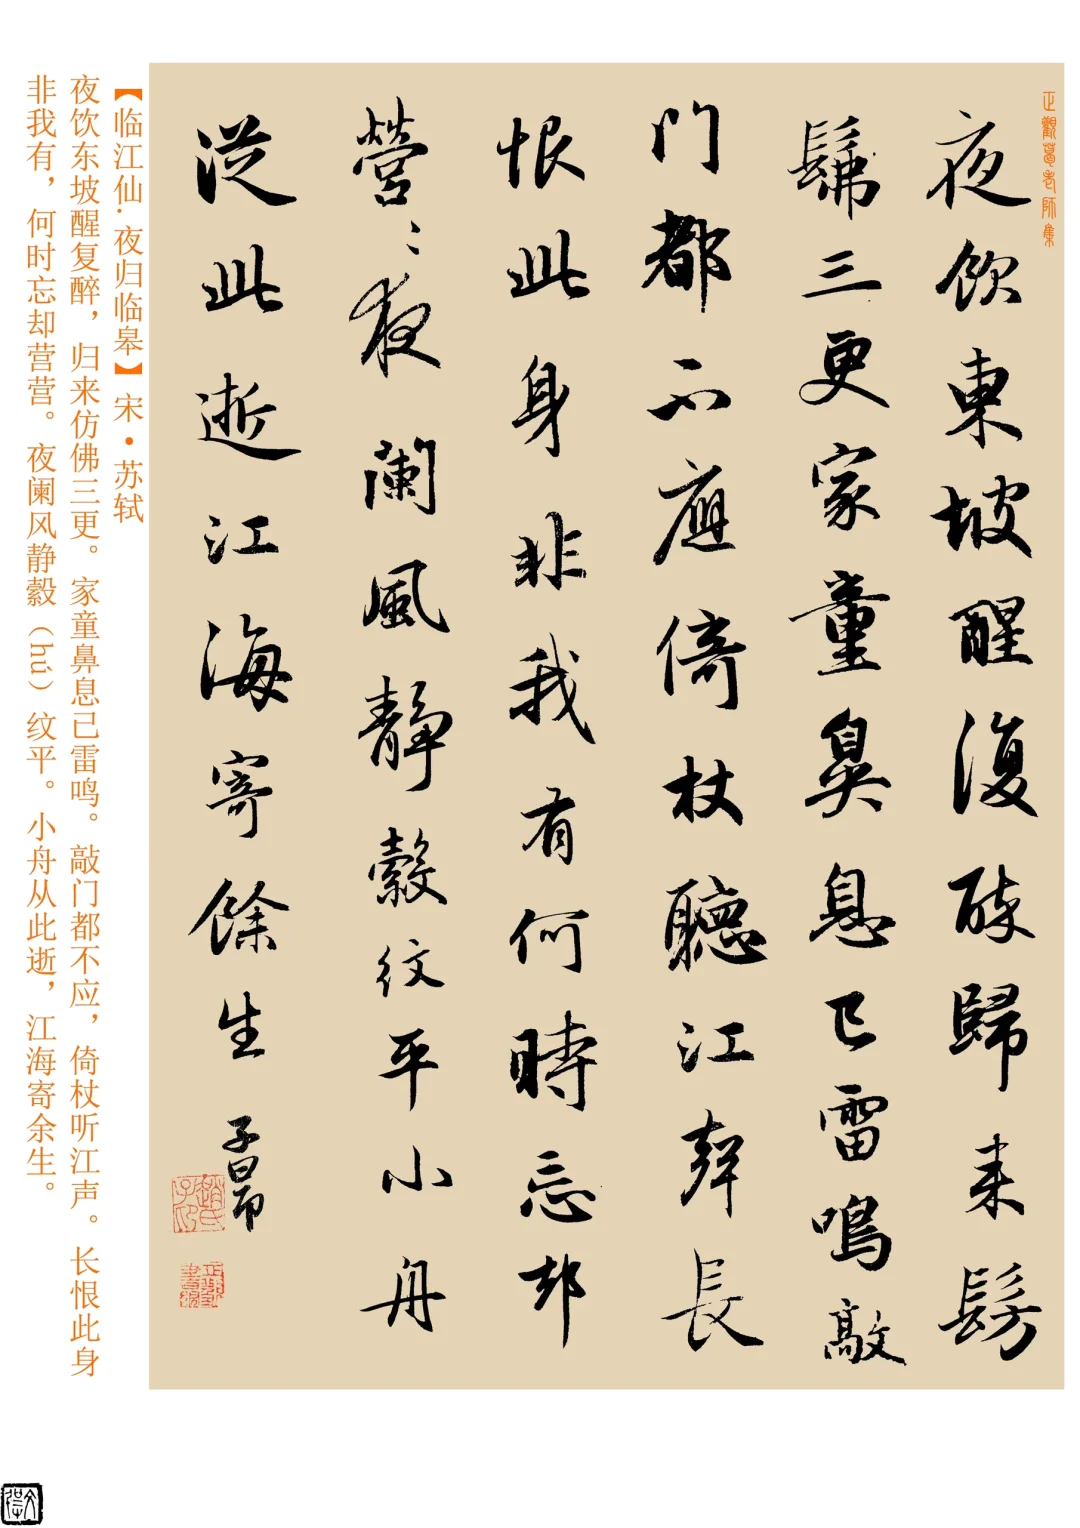 正觀葛老師集
夜飲東坡醒復醉歸来髣
髴三更家童鼻息已雷鳴敲
门都不應倚杖聽江聲長
恨此身非我有何時忘却
營〻夜闌風靜縠紋平小舟
從此逝江海寄餘生
子昂
趙氏子昂
【临江仙·夜归临皋】宋·苏轼
夜饮东坡醒复醉，归来仿佛三更。家童鼻息已雷鸣。敲门都不应，倚杖听江声。长恨此身
非我有，何时忘却营营。夜阑风静縠（hú）纹平。小舟从此逝，江海寄余生。